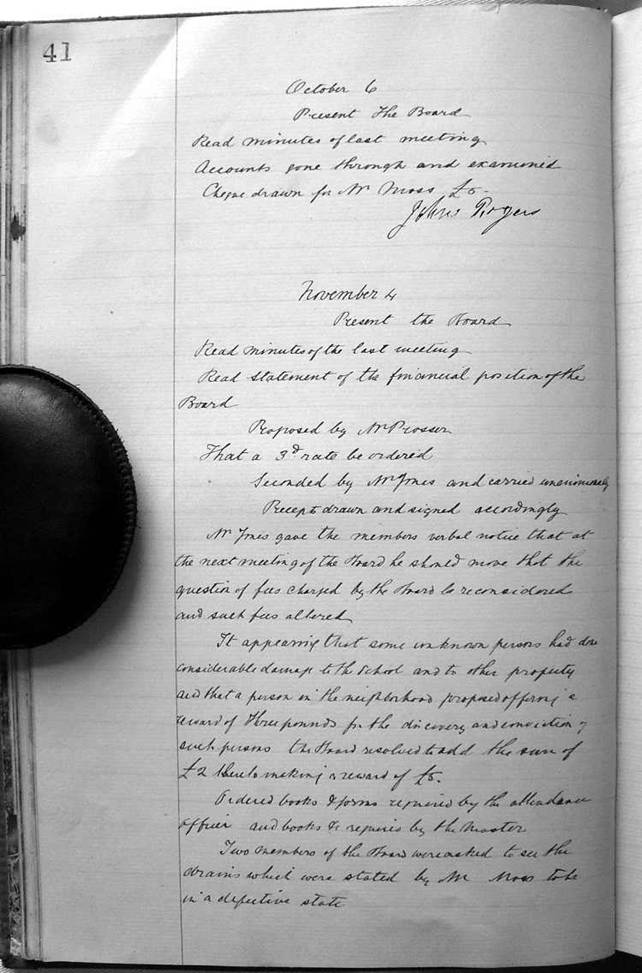 41
October 6
Present the Board
Read minutes of last meeting
Accounts gone through and examined
Cheque drawn for Mr Moss £5-
John Rogers
November 4
Present the Board
Read minutes of the last meeting
Read statement of the financial position of the
Board
Proposed by Mr Prosser
That a 3d rate be ordered
Seconded by Mr Jones and carried unanimously
Precept drawn and signed accordingly
Mr Jones gave the members verbal notice that at
the next meeting of the Board he should move that the
question of fees charged by the Board be reconsidered
and such fees altered
It appearing that some unknown persons had done
considerable damage to the School and to other property
and that a person in the neighborhood proposed offering a
reward of three pounds for the discovery and conviction of
such persons the Board resolved to add the sum of
£2 thereto making a reward of £5.
Ordered books & forms required by the attendance
officer and books &c required by the Master
Two members of the Board were asked to see the
drains which were stated by Mr Moss to be
in a defective state